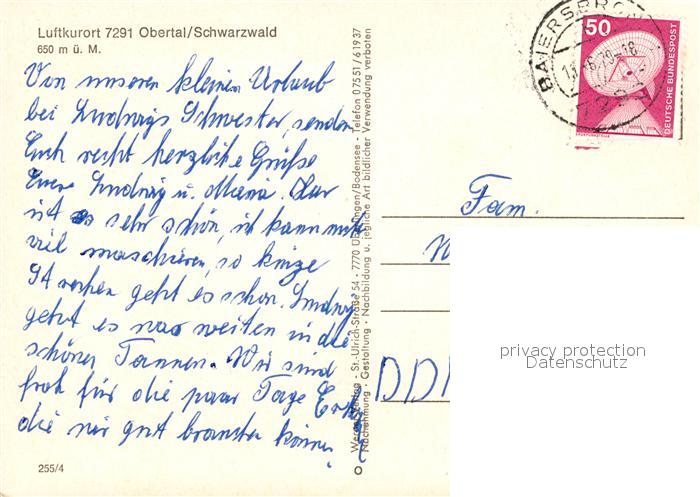 Luftkurort 7291 Obertal/Schwarzwald
650 m ü. M.
Von unseren kleinen Urlaub
bei Ludwigs Schwester, senden
Euch recht herzliche Grüße
Eure Ludwig u. Maria. Hier
ist es sehr schön, ich kann nicht
viel marschieren, so kurze
Strecken geht es schon. Ludwig
geht es was weiter in die
schönen Tannen. Wir sind
froh für die paar Tage
die wir gut brauchen können
255/4
Werner · St.-Ulrich-Straße 54 · 7770 Überlingen/Bodensee · Telefon 07551/61937
Nachahmung · Gestaltung · Nachbildung u. jegliche Art bildlicher Verwendung verboten
BAIERSBRONN
7291
50
DEUTSCHE BUNDESPOST
Fam.
DDR
privacy protection
Datenschutz